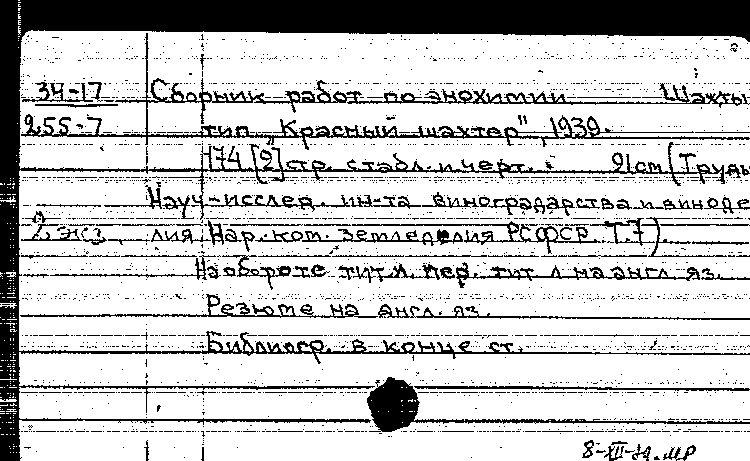 34-17 Сборник работ по энохимии Шахты
255-7 тип „Красный шахтер", 1939.
174 [2] стр. с табл. и черт. 21cm (Труды
Науч-исслед. ин-та виноградарства и виноде
2 экз. лия Нар. ком. земледелия РСФСР Т.7).
На обороте тит л. пер. тит л на англ яз.
Резюме на англ. яз.
Библиогр. в конце ст.
8-XII-